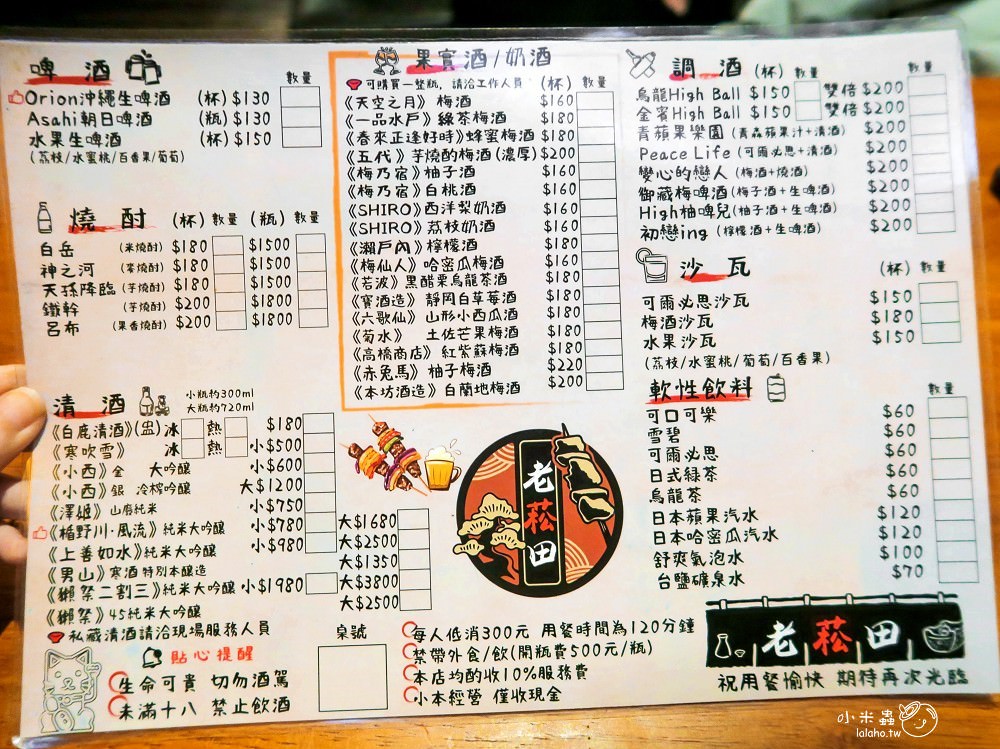 啤酒 數量
Orion沖繩生啤酒 (杯) $130
Asahi朝日啤酒 (瓶) $130
水果生啤酒 (杯) $150
(荔枝/水蜜桃/百香果/葡萄)
燒酎 (杯) 數量 (瓶) 數量
白岳 (米燒酎) $180 $1500
神之河 (麥燒酎) $180 $1500
天孫降臨 (芋燒酎) $180 $1500
鐵幹 (芋燒酎) $200 $1800
呂布 (果香燒酎) $200 $1800
清酒 小瓶約300ml
大瓶約720ml
《白鹿清酒》(壺) 冰 熱 $180
《寒吹雪》 冰 熱 小$500
《小西》金 大吟釀 小$600
《小西》銀 冷榨吟釀 大$1200
《澤姬》山廢純米 小$750 大$1680
《楯野川·風流》純米大吟釀 小$780 大$2500
《上善如水》純米大吟釀 小$980 大$1350
《男山》寒酒 特別本釀造 大$3800
《獺祭二割三》純米大吟釀 小$1980 大$2500
《獺祭》45純米大吟釀
私藏清酒請洽現場服務人員
貼心提醒
生命可貴 切勿酒駕
未滿十八 禁止飲酒
桌號
果實酒/奶酒
可購買一整瓶,請洽工作人員 (杯) 數量
《天空之月》梅酒 $160
《一品水戶》綠茶梅酒 $180
《春來正逢好時》蜂蜜梅酒 $180
《五代》芋燒酌梅酒(濃厚) $200
《梅乃宿》柚子酒 $160
《梅乃宿》白桃酒 $160
《SHIRO》西洋梨奶酒 $160
《SHIRO》荔枝奶酒 $160
《瀨戶內》檸檬酒 $180
《梅仙人》哈密瓜梅酒 $160
《若波》黑醋栗烏龍茶酒 $180
《寶酒造》靜岡白草莓酒 $180
《六歌仙》山形小西瓜酒 $180
《菊水》 土佐芒果梅酒 $180
《高橋商店》紅紫蘇梅酒 $180
《赤兔馬》柚子梅酒 $220
《本坊酒造》白蘭地梅酒 $200
老菘田
每人低消300元 用餐時間為120分鐘
禁帶外食/飲(開瓶費500元/瓶)
本店均酌收10%服務費
小本經營 僅收現金
調酒 (杯) 數量 數量
烏龍High Ball $150 雙倍 $200
金賓High Ball $150 雙倍 $200
青蘋果樂園 (青森蘋果汁+清酒) $200
Peace Life (可爾必思+清酒) $200
變心的戀人 (梅酒+燒酒) $200
御藏梅啤酒 (梅子酒+生啤酒) $200
High柚啤兒 (柚子酒+生啤酒) $200
初戀ing (檸檬酒+生啤酒) $200
沙瓦 (杯) 數量
可爾必思沙瓦 $150
梅酒沙瓦 $180
水果沙瓦 $150
(荔枝/水蜜桃/葡萄/百香果)
軟性飲料 數量
可口可樂 $60
雪碧 $60
可爾必思 $60
日式綠茶 $60
烏龍茶 $60
日本蘋果汽水 $120
日本哈密瓜汽水 $120
舒爽氣泡水 $100
台鹽礦泉水 $70
老菘田
祝用餐愉快 期待再次光臨
小米蟲
lalaho.tw